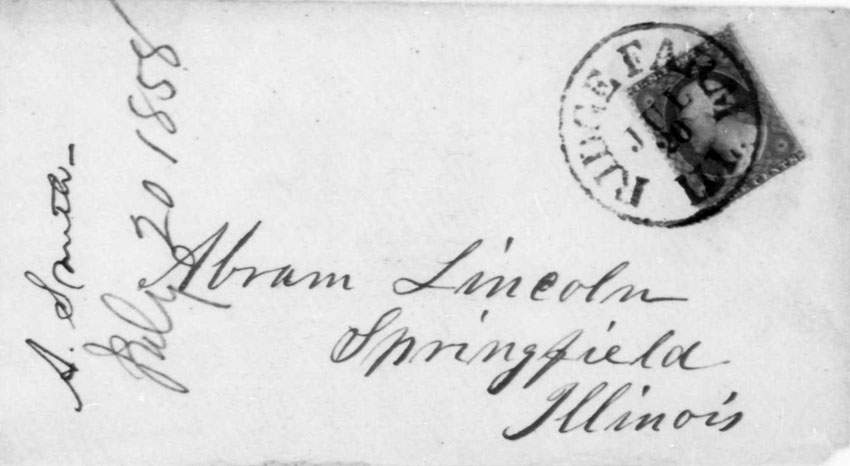 A. Smith
July 20 1858
RIDGE FARM
JUL
20
ILL.
Abram Lincoln
Springfield
Illinois